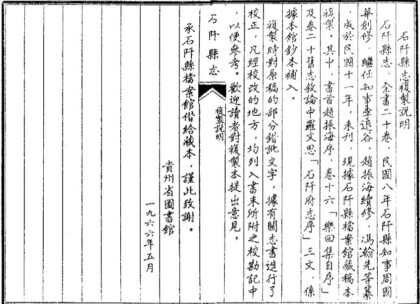 石阡縣志複製説明
石阡縣志,全書二十卷,民國八年石阡縣知事周國
華創修,繼任知事李遠谷、趙振海續修,馮翰先等纂
,成於民國十一年,未刊。現據石阡縣檔案館藏稿本
複製。其中,書首趙振海序,卷十六「樂回集自序」
及卷二十舊志敘論中羅文思「石阡府志序」三文,係
據本館鈔本補入。
複製時對原稿的部分錯訛文字,據有關志書進行了
校正,凡經校改的地方,均列入書末所附之校勘記中
,以便參考。歡迎讀者對複製本提出意見。
石阡縣志
複製説明
承石阡縣檔案館借給藏本,謹此致謝。
貴州省圖書館
一九六六年五月